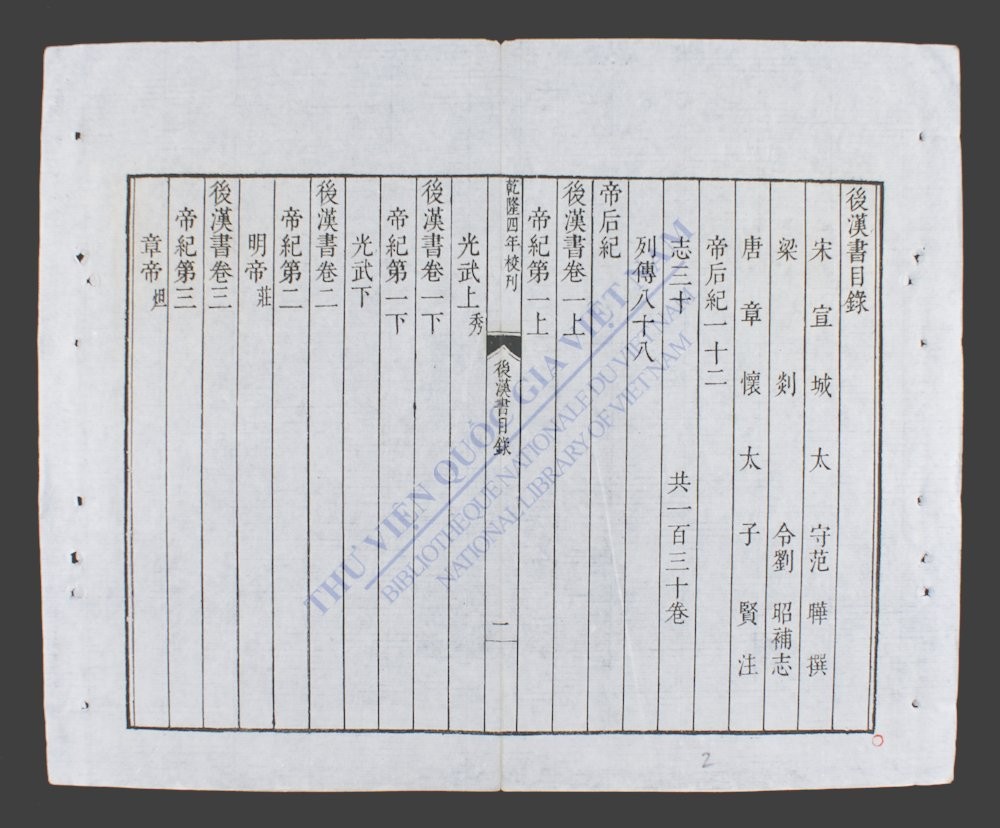 後漢書目錄
宋宣城太守范曄撰
梁剡令劉昭補志
唐章懷太子賢注
帝后紀一十二
志三十 共一百三十卷
列傳八十八
帝后紀
後漢書卷一上
帝紀第一上
乾隆四年校刊
後漢書目錄
二
光武上 秀
後漢書卷一下
帝紀第一下
光武下
後漢書卷二
帝紀第二
明帝 莊
後漢書卷三
帝紀第三
章帝 炟
THƯ VIỆN QUỐC GIA VIỆT NAM
BIBLIOTHEQUE NATIONALE DU VIETNAM
NATIONAL LIBRARY OF VIETNAM
2